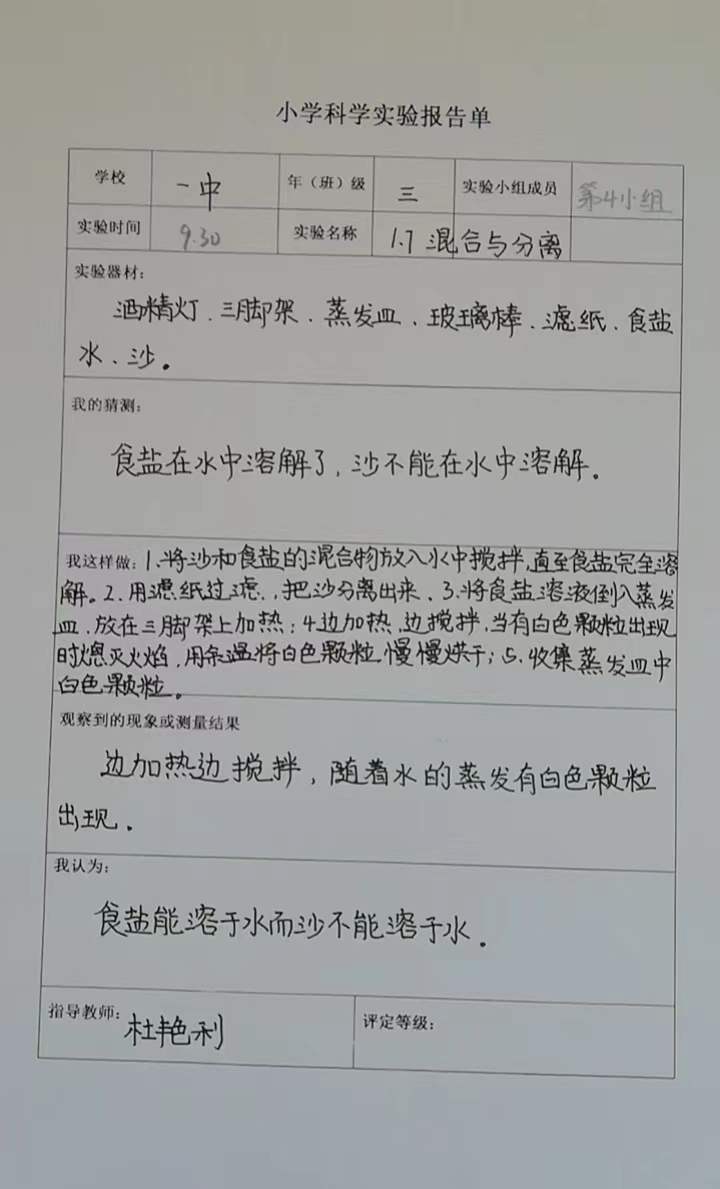 小学科学实验报告单
学校 一中 年（班）级 三 实验小组成员 第4小组
实验时间 9.30 实验名称 1.7 混合与分离
实验器材：
酒精灯、三脚架、蒸发皿、玻璃棒、滤纸、食盐
水、沙。
我的猜测：
食盐在水中溶解了，沙不能在水中溶解。
我这样做：1.将沙和食盐的混合物放入水中搅拌，直至食盐完全溶
解。2.用滤纸过滤，把沙分离出来、3.将食盐溶液倒入蒸发
皿，放在三脚架上加热；4边加热、边搅拌，当有白色颗粒出现
时熄灭火焰，用余温将白色颗粒慢慢烘干；5、收集蒸发皿中
白色颗粒。
观察到的现象或测量结果
边加热边搅拌，随着水的蒸发有白色颗粒
出现。
我认为：
食盐能溶于水而沙不能溶于水。
指导教师：杜艳利 评定等级：